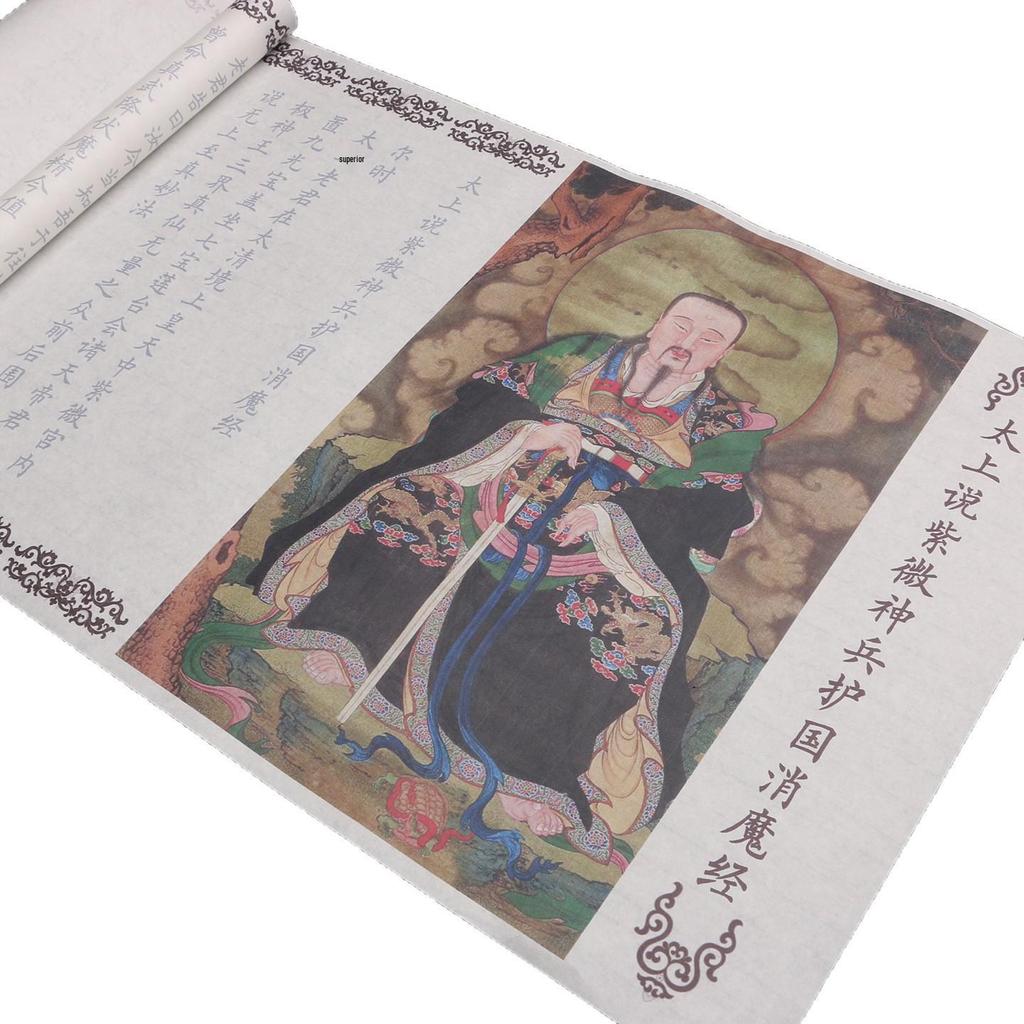 太上说紫微神兵护国消魔经
太上说紫微神兵护国消魔经
尔时
太
置九老君在太清境上皇天中紫微宫内
极神光宝盖坐七宝莲台会诸天帝君
说无王三界真仙无量之众前后围
上至真妙法
老君告曰汝今当知吾于往
曾命真武降伏魔精今值
superior